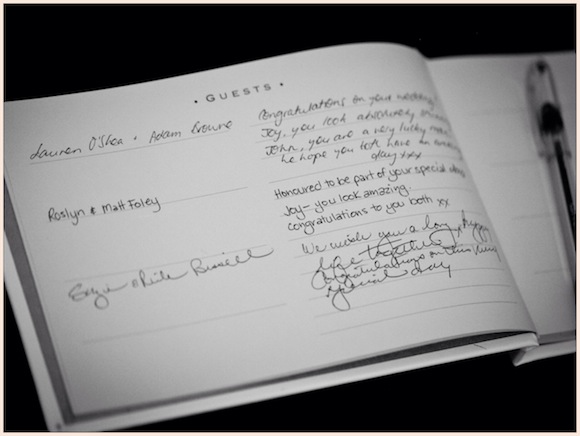 • GUESTS •
Lauren O'Shea + Adam Browne
Congratulations on your wedding
Joy, you look absolutely
John, you are a very lucky man
we hope you both have an
day xxx
Roslyn & Matt Foley
Honoured to be part of your special
Joy - you look amazing.
congratulations to you both xx
Russell
We wish you a long & happy
life together
Congratulations on this very
special day